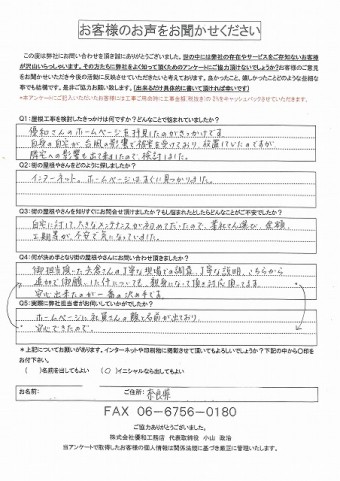 お客様のお声をお聞かせください
この度は弊社にお問い合わせを頂き誠にありがとうございました。世の中には弊社の存在やサービスをご存知ないお客様
が沢山いらっしゃいます。その方たちに弊社をよく知って頂くためのアンケートにご協力頂けないでしょうか？お客様のご意見
をお聞かせいただき今後の活動に反映させていただきたいと考えております。良かったこと、嬉しかったことどのような些細な
事でも結構です。是非ご協力お願い致します。（出来るだけ具体的に書いて頂ければ幸いです）
*本アンケートにご記入いただいたお客様には工事ご用命時に工事金額（税抜き）の1％をキャッシュバックさせていただきます。
Q1：屋根工事を検討したきっかけは何ですか？どんなことで悩まれていましたか？
優和さんのホームページを拝見したのがきっかけです。
自身の自宅が、台風の影響で被害を受けており、放置していたのですが
隣宅への影響も出て来ましたので、検討しました。
Q2：街の屋根やさんをどのように探しましたか？
インターネット。ホームページはすぐに見つかりました。
Q3：街の屋根やさんを知りすぐにお問合せ頂けましたか？もし悩まれたとしたらどんなことがご不安でしたか？
自宅に対して、大きなメンテナンスが初めてだったので、業者さん選び、金額、
工期等が、不安で気になっていました。
Q4：何が決め手となり街の屋根やさんにお問い合わせ頂きましたか？
御担当頂いた方の丁寧な現場での調査、丁寧な説明、こちらから
追加で御願いした件についても、親身になって頂き対応頂けてます。
安心出来たのが一番の決め手です。
Q5：実際に弊社担当者がお伺いしていかがでしたか？
ホームページに社員さんの顔と名前が出ており、
安心できたので。
*上記についてお願いがあります。インターネットや印刷物に掲載させて頂いてもよろしいでしょうか？下記の中から〇印を
お付下さい。
（　）名前を出してもよい　（〇）イニシャルなら出してもよい
お名前：　ご住所：奈良県
FAX 06-6756-0180
ご協力ありがとうございました。
株式会社優和工務店 代表取締役 小山 政治
当アンケートで取得したお客様の個人情報は関係法規に基づき厳正に管理いたします。